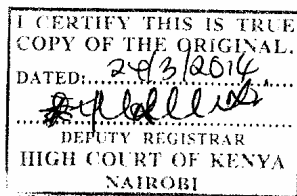 I CERTIFY THIS IS TRUE
COPY OF THE ORIGINAL.
DATED: 24/3/2014
DEPUTY REGISTRAR
HIGH COURT OF KENYA
NAIROBI